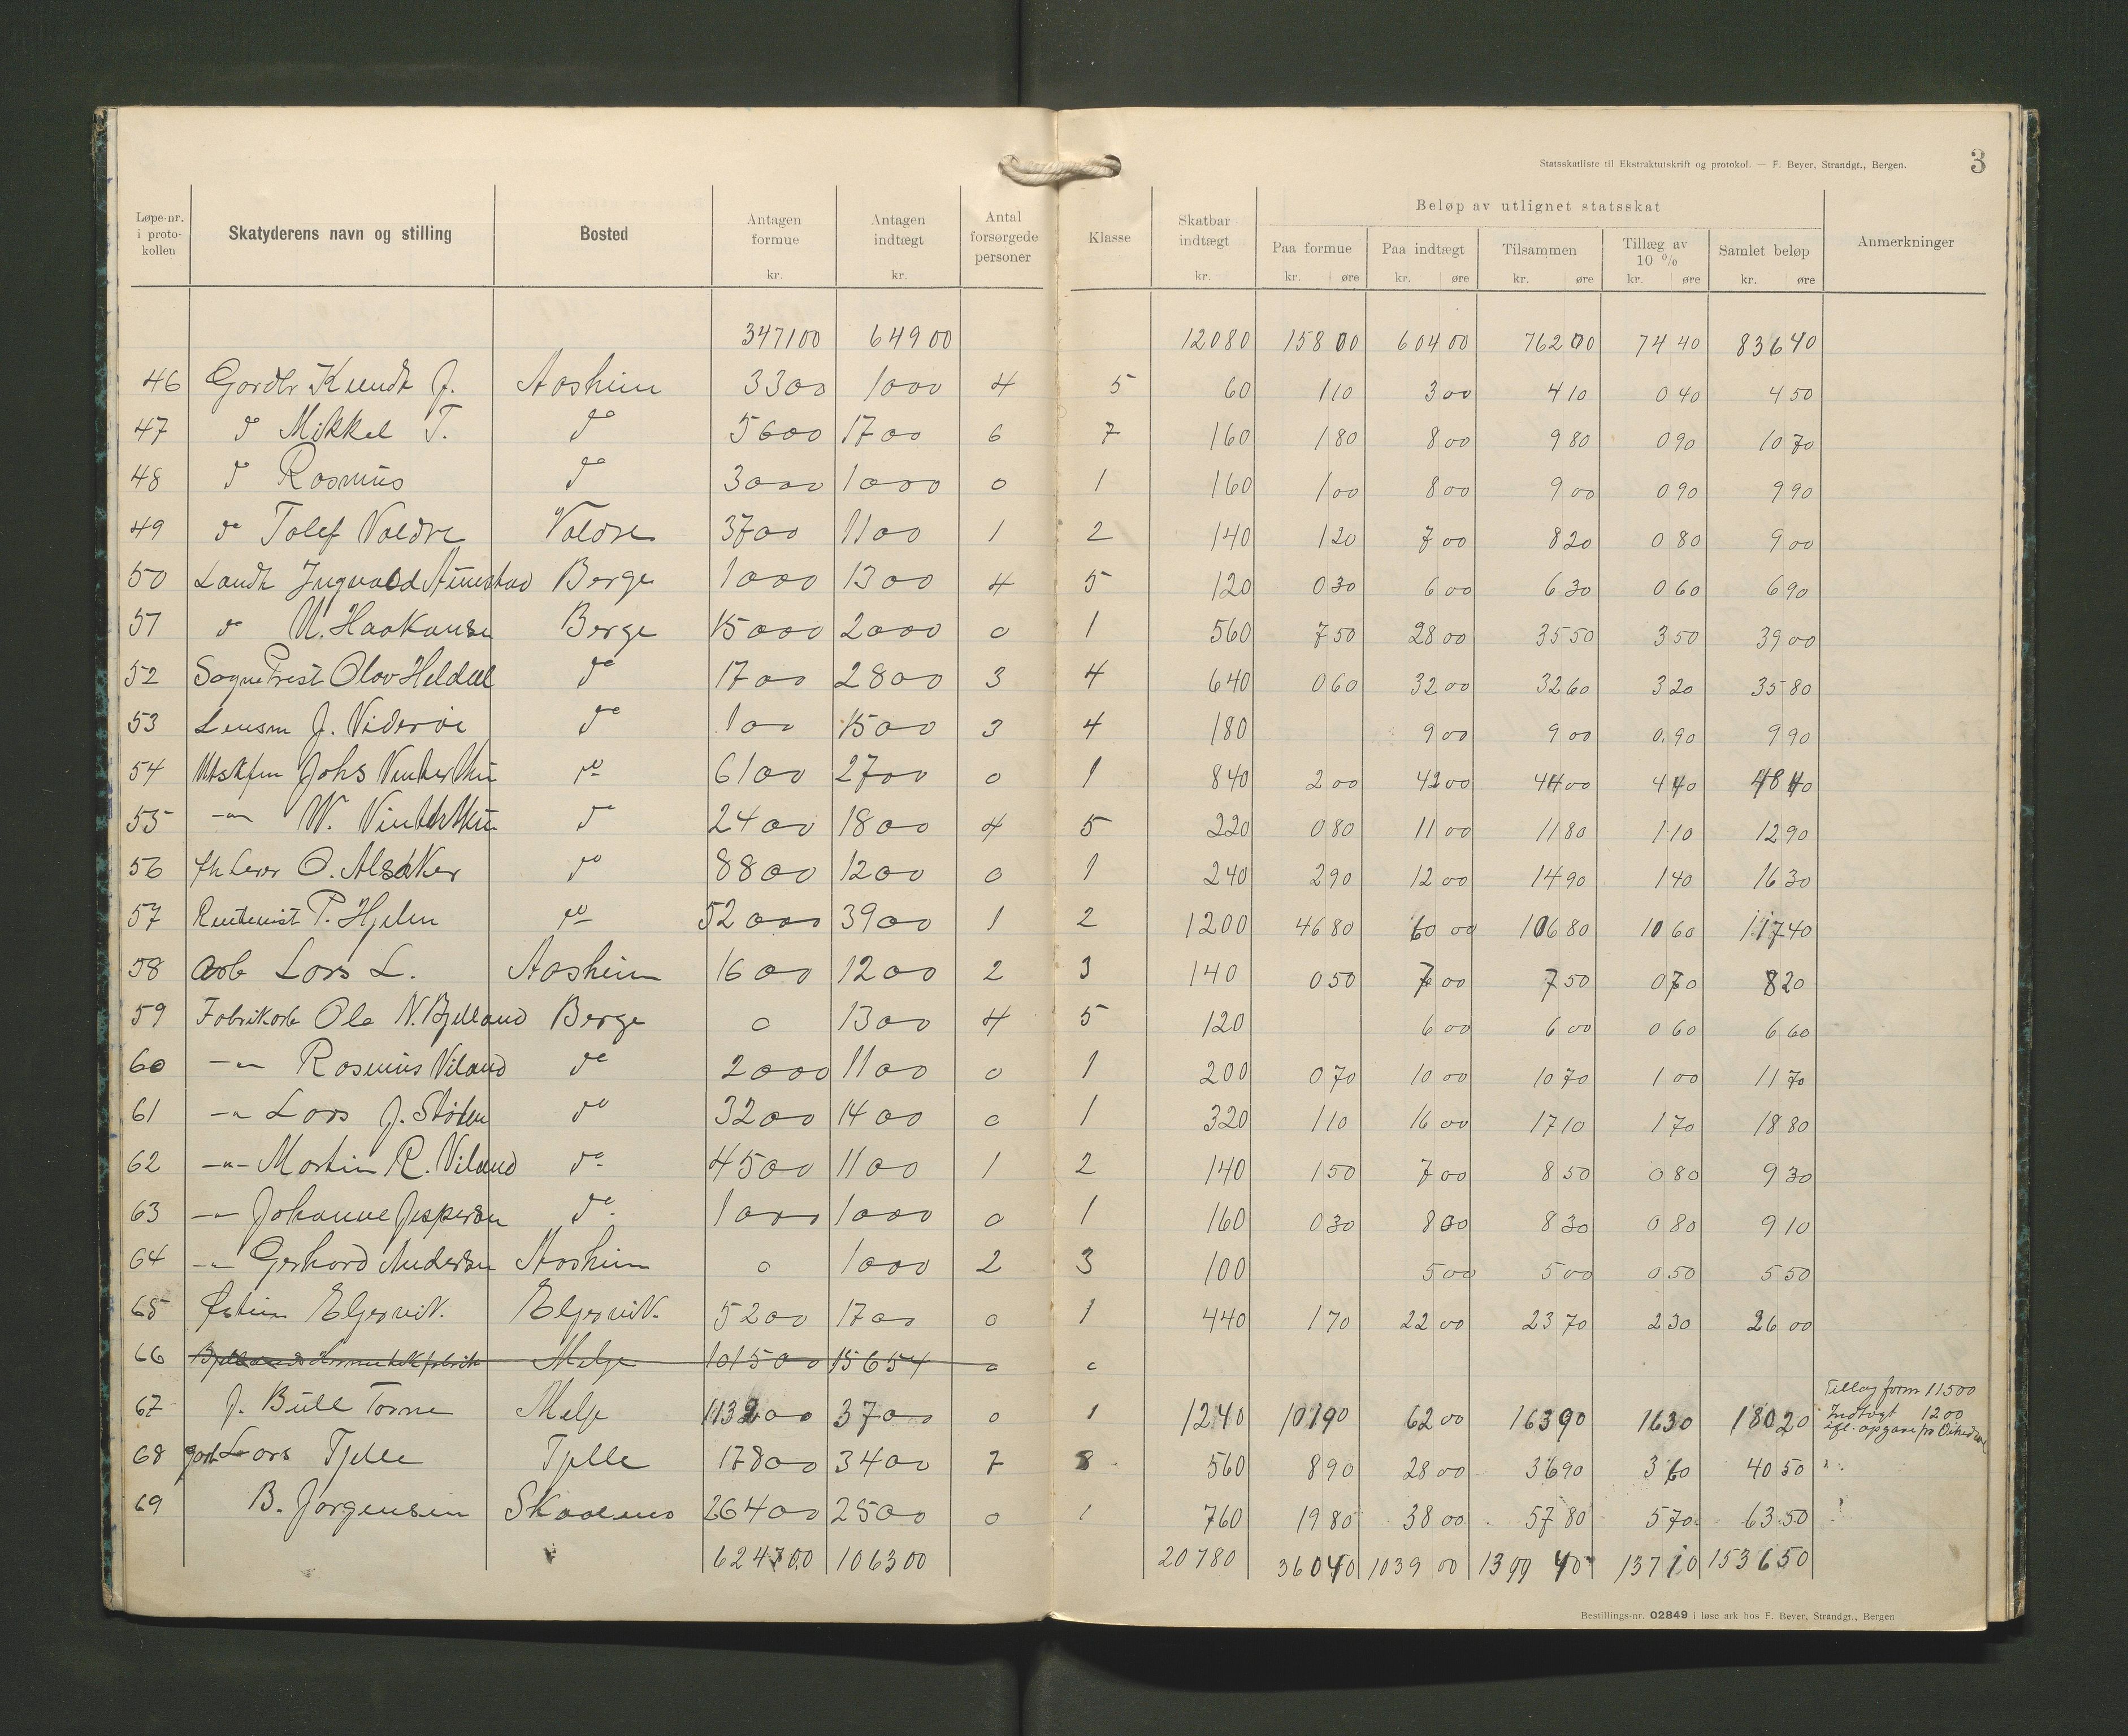 Statsskatliste til Ekstraktutskrift og protokol. — F. Beyer, Strandgt., Bergen. 3
Løpe-nr. i proto-kollen Skatyderens navn og stilling Bosted Antagen formue kr. Antagen indtægt kr. Antal forsørgede personer Klasse Skatbar indtægt kr. Beløp av utlignet statsskat Paa formue kr. øre Paa indtægt kr. øre Tilsammen kr. øre Tillæg av 10 % kr. øre Samlet beløp kr. øre Anmerkninger
347100 64900 12080 158 00 604 00 762 00 74 40 836 40
46 Gardbr Knudt J. Aasheim 3300 1000 4 5 60 1 10 3 00 4 10 0 40 4 50
47 do Mikkel T. do 5600 1700 6 7 160 1 80 8 00 9 80 0 90 10 70
48 do Rasmus do 3000 1000 0 1 160 1 00 8 00 9 00 0 90 9 90
49 do Tolef Valdre Valdre 3700 1100 1 2 140 1 20 7 00 8 20 0 80 9 00
50 Landh Ingvald Berge 1000 1300 4 5 120 0 30 6 00 6 30 0 60 6 90
51 do N. Haakonsen Berge 15000 2000 0 1 560 7 50 28 00 35 50 3 50 39 00
52 Sogneprest Olav Heldal do 1700 2800 3 4 640 0 60 32 00 32 60 3 20 35 80
53 Lensm J. Viderøe do 100 1500 3 4 180 9 00 9 00 0.90 9 90
54 Johs Vinterhun do 6100 2700 0 1 840 2 00 42 00 44 00 4 40 48 40
55 -"- W. Vinterhun do 2400 1800 4 5 220 0 80 11 00 11 80 1 10 12 90
56 fh lærer O. Alsaker do 8800 1200 0 1 240 2 90 12 00 14 90 1 40 16 30
57 Rentenist P. Hjelm do 52000 3900 1 2 1200 46 80 60 00 106 80 10 60 117 40
58 Arb Lars L. Aasheim 1600 1200 2 3 140 0 50 7 00 7 50 0 70 8 20
59 Fabrikarb Ole N. Bjelland Berge 0 1300 4 5 120 6 00 6 00 0 60 6 60
60 -"- Rasmus Viland do 2000 1100 0 1 200 0 70 10 00 10 70 1 00 11 70
61 -"- Lars J. Støten do 3200 1400 0 1 320 1 10 16 00 17 10 1 70 18 80
62 -"- Martin R. Viland do 4500 1100 1 2 140 1 50 7 00 8 50 0 80 9 30
63 -"- Johanne Jespersen do 1000 1000 0 1 160 0 30 8 00 8 30 0 80 9 10
64 -"- Gerhard Andersen Aasheim 0 1000 2 3 100 5 00 5 00 0 50 5 50
65 Østein Elgervik. Elgervik. 5200 1700 0 1 440 1 70 22 00 23 70 2 30 26 00
66 Bjellands Hermetikfabrik Melje 101500 15654 0 0
67 J. Bull Torne Melje 113200 3700 0 1 1240 101 90 62 00 163 90 16 30 180 20 Tillag form 11500 Indtægt 1200 ifl. opgave
68 garb Lars Tjelle Tjelle 17800 3400 7 8 560 8 90 28 00 36 90 3 60 40 50 "
69 B. Jørgensen Skaalenes 26400 2500 0 1 760 19 80 38 00 57 80 5 70 63 50
624700 106300 20780 360 40 1039 00 1399 40 137 10 1536 50
Bestillings-nr. 02849 i løse ark hos F. Beyer, Strandgt., Bergen